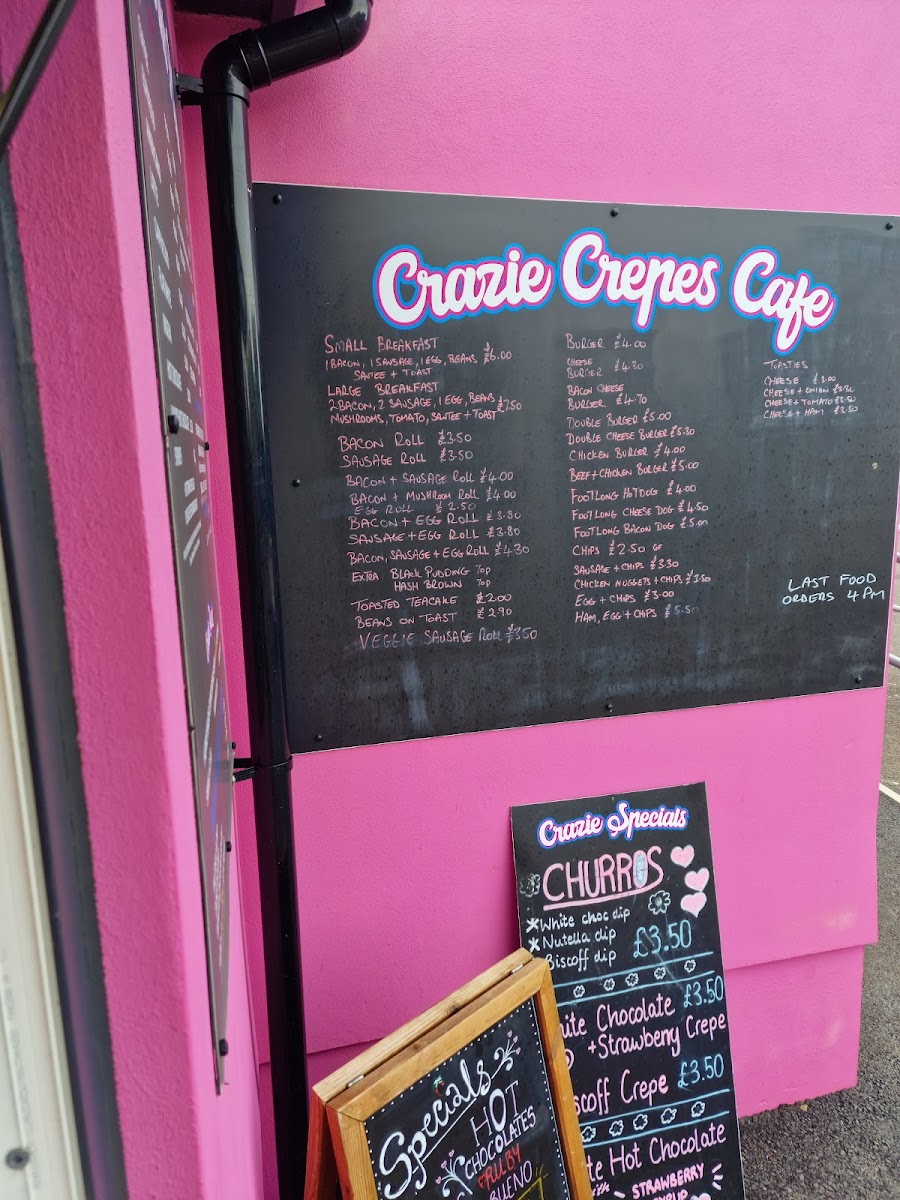 Crazie Crepes Cafe
SMALL BREAKFAST
1 BACON, 1 SAUSAGE, 1 EGG, BEANS £6.00
SAUTEE + TOAST
LARGE BREAKFAST
2 BACON, 2 SAUSAGE, 1 EGG, BEANS £7.50
MUSHROOMS, TOMATO, SAUTEE + TOAST
BACON ROLL £3.50
SAUSAGE ROLL £3.50
BACON + SAUSAGE ROLL £4.00
BACON + MUSHROOM ROLL £4.00
EGG ROLL £2.50
BACON + EGG ROLL £3.80
SAUSAGE + EGG ROLL £3.80
BACON, SAUSAGE + EGG ROLL £4.30
EXTRA BLACK PUDDING 70p
HASH BROWN 70p
TOASTED TEACAKE £2.00
BEANS ON TOAST £2.90
VEGGIE SAUSAGE ROLL £3.50
BURGER £4.00
CHEESE
BURGER £4.30
BACON CHEESE
BURGER £4.70
DOUBLE BURGER £5.00
DOUBLE CHEESE BURGER £5.30
CHICKEN BURGER £4.00
BEEF + CHICKEN BURGER £5.00
FOOTLONG HOTDOG £4.00
FOOTLONG CHEESE DOG £4.50
FOOTLONG BACON DOG £5.00
CHIPS £2.50 GF
SAUSAGE + CHIPS £3.30
CHICKEN NUGGETS + CHIPS
EGG + CHIPS £3.00
HAM, EGG + CHIPS £5.50
TOASTIES
CHEESE
CHEESE + ONION
CHEESE + TOMATO £3.50
CHEESE + HAM £3.50
LAST FOOD
ORDERS 4PM
Crazie Specials
CHURROS
White choc dip
Nutella dip
Biscoff dip £3.50
Chocolate £3.50
+Strawberry Crepe
Crepe £3.50
Hot Chocolate
STRAWBERRY
Specials
HOT
CHOCOLATES
RUBY
BUENO